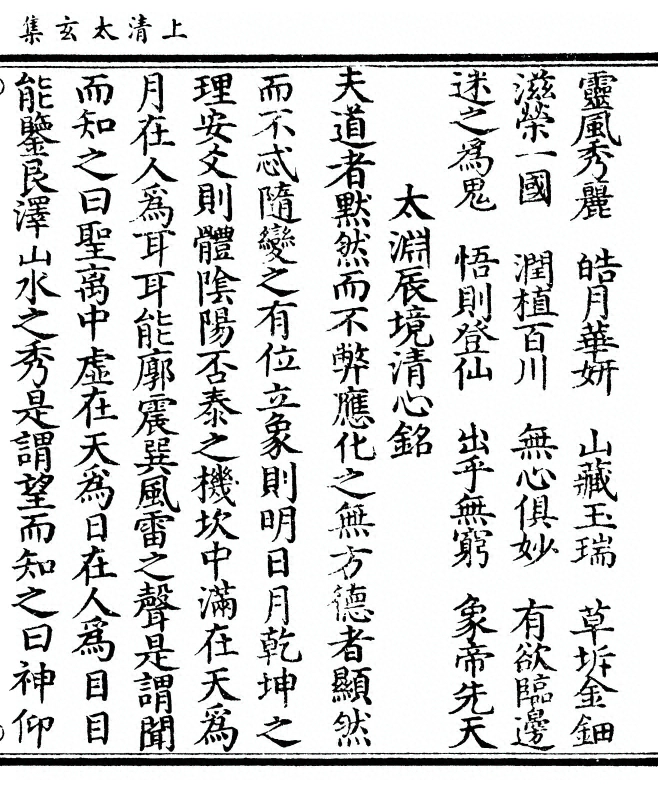 上清太玄集
靈風秀麗　皓月華妍　山藏玉瑞　草坼金鈿
滋榮一國　潤植百川　無心俱妙　有欲臨邊
迷之爲鬼　悟則登仙　出乎無窮　象帝先天
太淵辰境清心銘
夫道者默然而不弊應化之無方德者顯然
而不忒隨變之有位立象則明日月乾坤之
理安爻則體陰陽否泰之機坎中滿在天爲
月在人爲耳耳能廓震巽風雷之聲是謂聞
而知之曰聖离中虛在天爲日在人爲目目
能鑒艮澤山水之秀是謂望而知之曰神仰